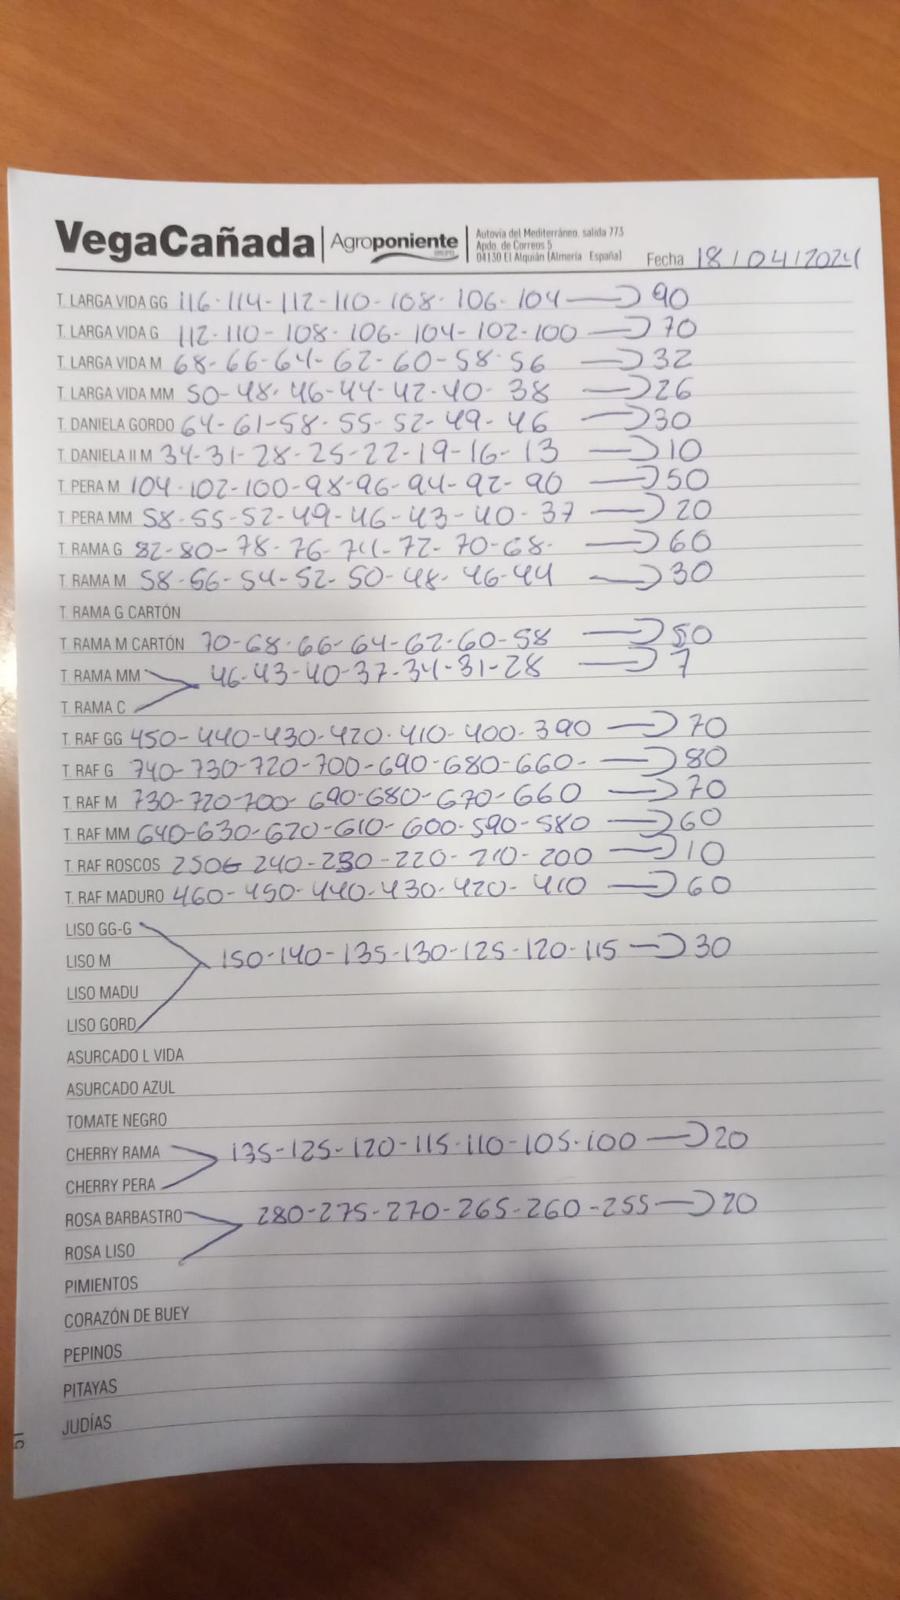 VegaCañada | Agroponiente GRUPO | Autovía del Mediterráneo, salida 773
Apdo. de Correos 5
04130 El Alquián (Almería España)
Fecha 18/04/2024
T. LARGA VIDA GG 116-114-112-110-108-106-104 → 90
T. LARGA VIDA G 112-110-108-106-104-102-100 → 70
T. LARGA VIDA M 68-66-64-62-60-58-56 → 32
T. LARGA VIDA MM 50-48-46-44-42-40-38 → 26
T. DANIELA GORDO 64-61-58-55-52-49-46 → 30
T. DANIELA II M 34-31-28-25-22-19-16-13 → 10
T. PERA M 104-102-100-98-96-94-92-90 → 50
T. PERA MM 58-55-52-49-46-43-40-37 → 20
T. RAMA G 82-80-78-76-74-72-70-68- → 60
T. RAMA M 58-56-54-52-50-48-46-44 → 30
T. RAMA G CARTÓN
T. RAMA M CARTÓN 70-68-66-64-62-60-58 → 50
T. RAMA MM 46-43-40-37-34-31-28 → 7
T. RAMA C
T. RAF GG 450-440-430-420-410-400-390 → 70
T. RAF G 740-730-720-700-690-680-660- → 80
T. RAF M 730-720-700-690-680-670-660 → 70
T. RAF MM 640-630-620-610-600-590-580 → 60
T. RAF ROSCOS 250-240-230-220-210-200 → 10
T. RAF MADURO 460-450-440-430-420-410 → 60
LISO GG-G
LISO M 150-140-135-130-125-120-115 → 30
LISO MADU
LISO GORD
ASURCADO L VIDA
ASURCADO AZUL
TOMATE NEGRO
CHERRY RAMA 135-125-120-115-110-105-100 → 20
CHERRY PERA
ROSA BARBASTRO 280-275-270-265-260-255 → 20
ROSA LISO
PIMIENTOS
CORAZÓN DE BUEY
PEPINOS
PITAYAS
JUDÍAS